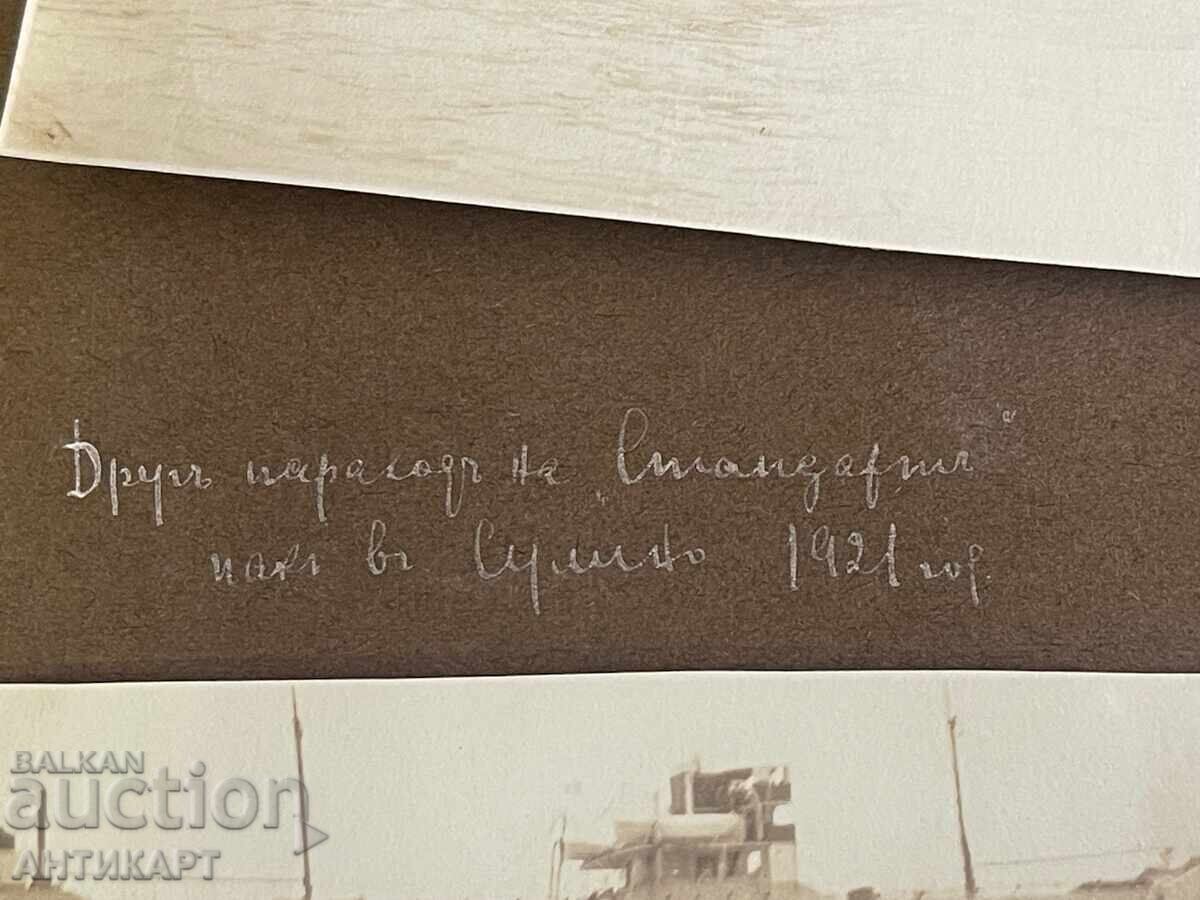 Другъ параходъ на „Стандартъ“
пакъ въ Сулина 1921 год.
BALKAN
auction
АНТИКАРТ